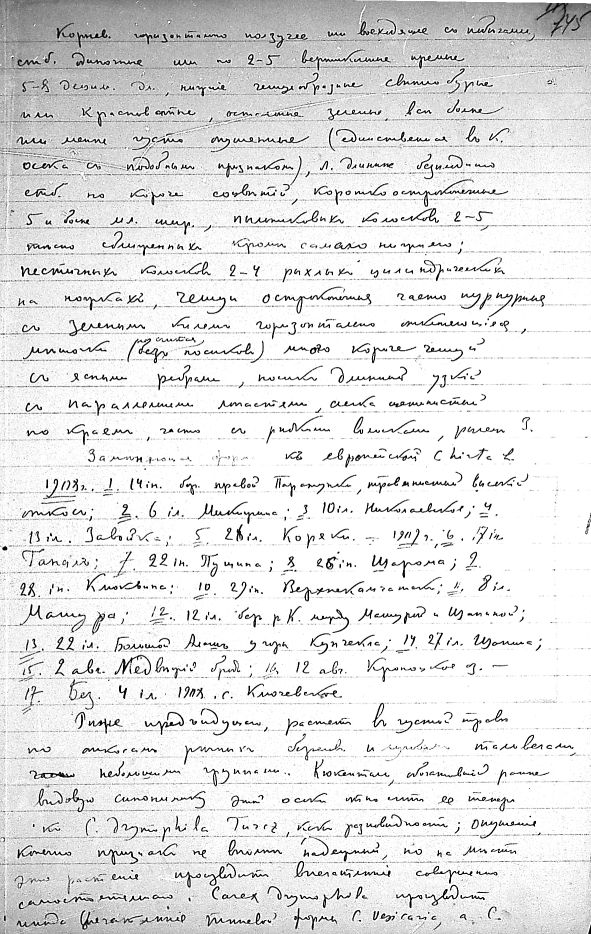 745
Корнев. горизонтально ползучее или восходящее съ побегами,
стб. одиночные или по 2-5 вертикальные прямые
5-8 децим. дл., нижние чешуеобразные свинцово бурые
или красноватые, остальные зеленые, все более
или менее густо опушенные (единственная въ К.
осока съ подобнымъ признакомъ), л. длинные
стб. но короче соцветий, коротко остроконечные
5 и более мл. шир., пыльниковыхъ колосковъ 2-5,
тесно сближенныхъ кроме самаго нижняго;
пестичныхъ колосковъ 2-4 рыхлыхъ цилиндрическихъ
на ножкахъ, чешуи остроконечныя часто пурпурныя
съ зеленымъ килемъ горизонтально
мешочки (безъ носиковъ) много короче чешуй
съ ясными ребрами, носикъ длинный узкій
съ параллельными лопастями,
по краямъ, часто съ редкими волосками, рылец 3.
Замещающая форма къ европейской C. hirta L.
1908г. 1. 14 іn. бер. правой Паратунки, травянистый высокій
откосъ; 2. 6 іл. Микижина; 3 10 іл. Николаевское; 4.
13 іл. Завойка; 5 26 іл. Коряки. – 1909г. 6. 17 іn
Ганалъ; 7. 22 іn. Пущина; 8 26 іn. Шарома; 9.
28. іn. Клюквина; 10. 29 іn. Верхнекамчатскъ; 11. 8 іл.
Машура; 12. 12 іл. бер. р. К. между Машурой и Щапиной;
13. 22 іл. Большой у горы Кунчекла; 14. 27 іл. Щапина;
15. 2 авг. Медвежій бродъ; 16. 12 авг. Кроноцкое оз. –
17. Без. 4 іл. 1908. с. Ключевское
Реже предъидущаго, растетъ въ густой траве
по откосамъ речныхъ береговъ и тальвегами,
небольшими группами. Кюкенталь, обогатившій ранее
видовую синонимику этой осоки относитъ ее теперь
къ C. drymophila Turcz, какъ разновидность; опушение,
конечно признакъ не вполне надежный, но на месте
это растение производитъ впечатление совершенно
самостоятельнаго. Carex drymophila производитъ
впечатление теневой формы C. vesicaria, а C.